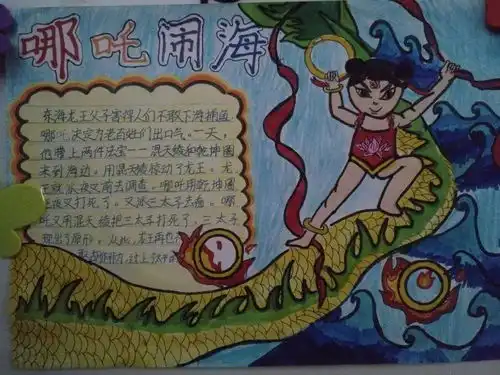 哪吒闹海
东海龙王父子害得人们不敢下海捕鱼
哪吒决定为老百姓们出口气。一天,
他带上两件法宝——混天绫和乾坤圈
来到海边。用混天绫惊动了龙王。龙
王就派夜叉前去调查,哪吒用乾坤圈
把夜叉打死了。又派三太子去看。哪
吒又用混天绫把三太子打死了,三太子
现出了原形。从此,龙王再也不